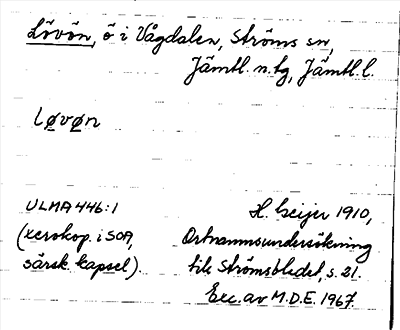 Lövön, ö i Vågdalen, Ströms sn,
Jämtl. n. tg, Jämtl. l.
løvøn
ULMA 446:1
(xerokop. i SOA,
särsk. kapsel).
H. Geijer 1910,
Ortnamnsundersökning
till Strömsbladet, s. 21.
Exc. av M.D.E. 1967.